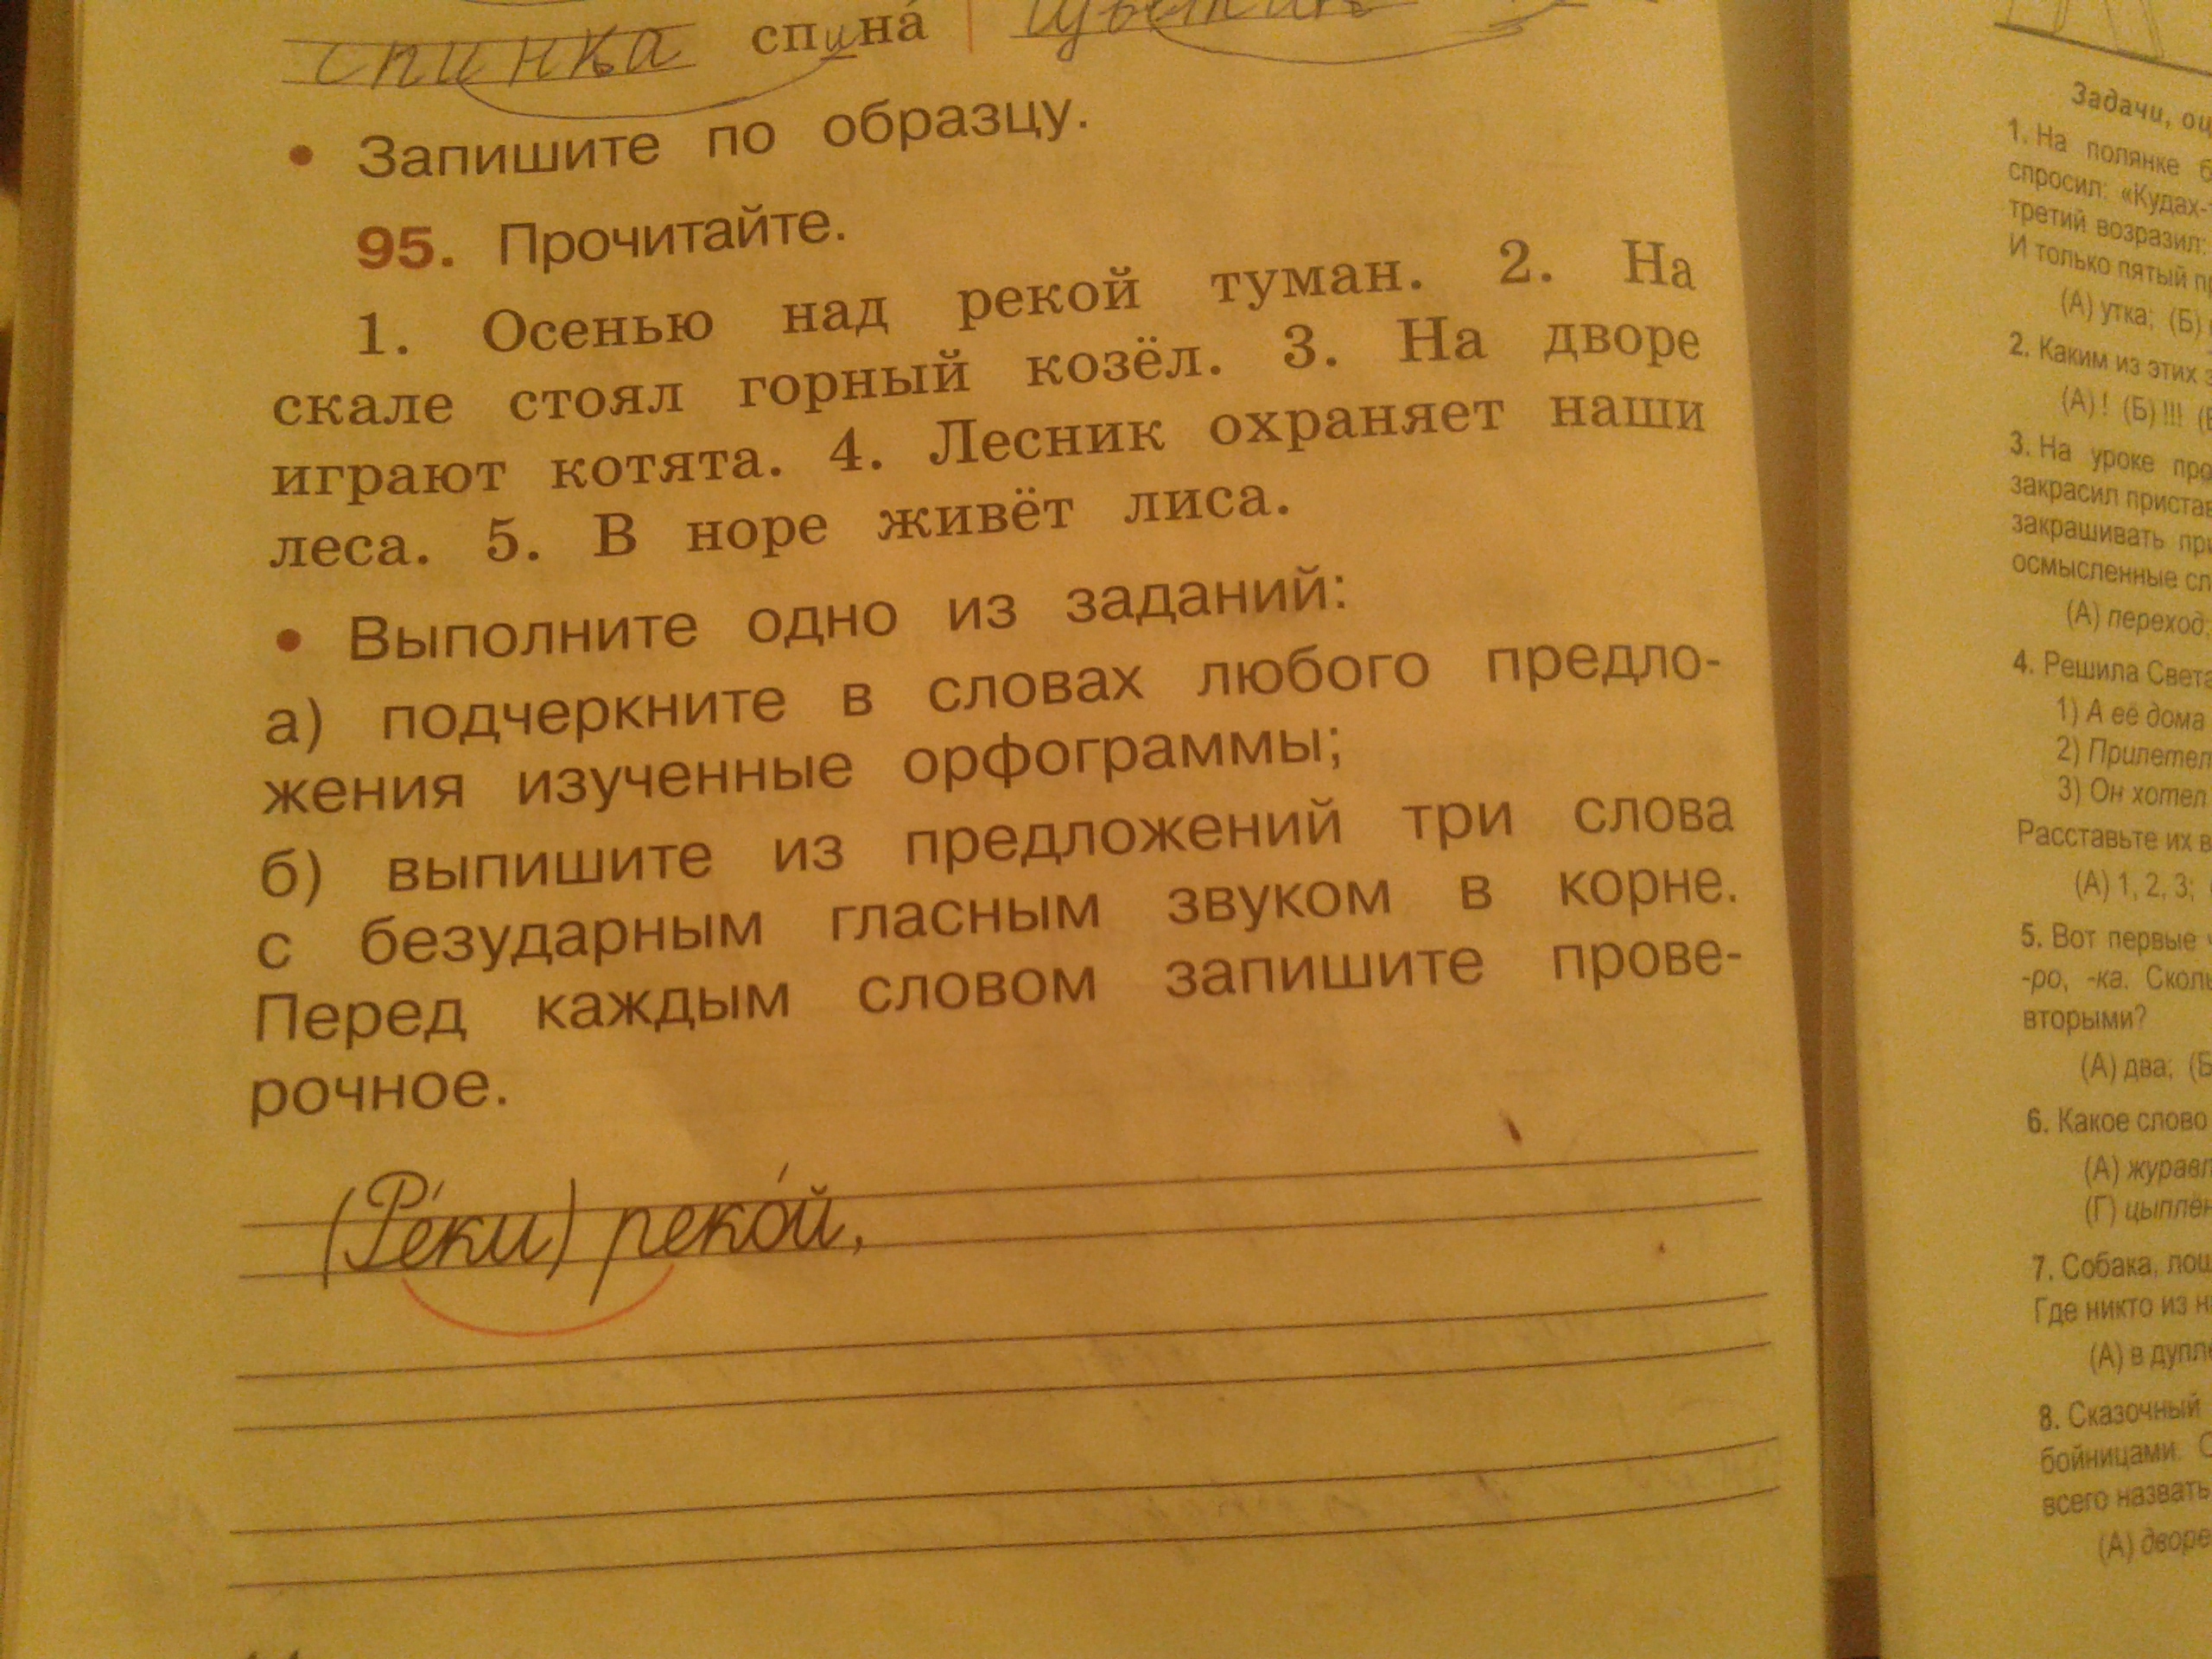 спинка спина́
• Запишите по образцу.
95. Прочитайте.
1. Осенью над рекой туман. 2. На
скале стоял горный козёл. 3. На дворе
играют котята. 4. Лесник охраняет наши
леса. 5. В норе живёт лиса.
• Выполните одно из заданий:
а) подчеркните в словах любого предло-
жения изученные орфограммы;
б) выпишите из предложений три слова
с безударным гласным звуком в корне.
Перед каждым словом запишите прове-
рочное.
(Ре́ки) реко́й,
Задачи,
1. На полянке
спросил: «Кудах-
третий возразил:
И только пятый
(А) утка; (Б)
2. Каким из этих
(А) ! (Б) !!!
3. На уроке
закрасил
закрашивать
осмысленные
(А) переход;
4. Решила Света
1) А её дома
2)
3) Он хотел
Расставьте их в
(А) 1, 2, 3;
5. Вот первые
-ро, -ка.
вторыми?
(А) два; (Б
6. Какое слово
(А)
(Г)
7. Собака,
Где никто из
(А) в
8. Сказочный
бойницами.
всего назвать
(А)